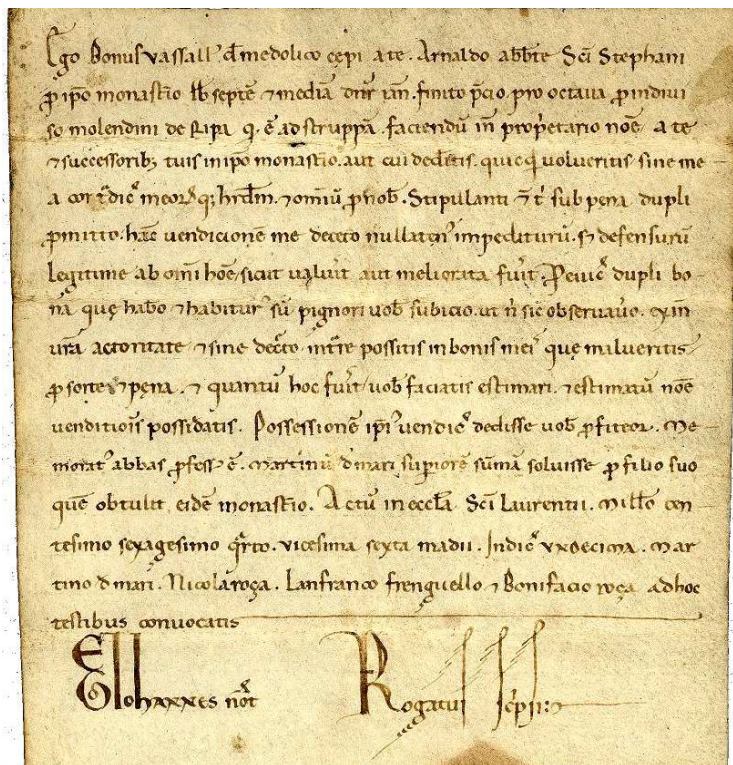 Ego Bonusvassall' d' medolico cępi a te. Arnaldo abbte Sci Stephani
p ipo monastio lb septe ⁊ mediā dnr ian. finito pcio, pro octaua pindiui
so molendini de Ripa q. ē ad struppā. faciendū in propetario noē a te
⁊ successorib; tuis in ipo monastio. aut cui dedetis. quicq volueritis sine me
a cont dic meorq; hrdm. ⁊ omiū p nob. Stipulanti ⁊ t sub pena dupli
pmitto. hāc uendicionē me deceto nullaten' impediturū. s; defensurū
legitime ab omi hoē sicut ualuit aut meliorata fuit. Peiuc dupli bo
na quę habo ⁊ habitur sū pignori uob subicio. ut n sic obseruauo. exin
ura actoritate ⁊ sine decto. intre possitis in bonis meis quę malueritis.
p sorte ⁊ pęna. ⁊ quantū hoc fuit uob faciatis estimari. ⁊ estimatū noē
uenditiois possidatis. Possessionē ipi' uendic dedisse uob pfiteor. Me
morat' abbas pfess' ē. Martinū d' mari supiorē sūmā soluisse p filio suo
quē obtulit eidē monastio. Actū in eccla Sci Laurentii. Millo cen
tesimo sexagesimo qrto. uicesima sexta madii. Indic vndecima. Mar
tino d' mari. Nicola roça. Lanfranco frenguello ⁊ Bonifacio roça ad hoc
testibus conuocatis
Ego Iohannes not Rogatus scpsi: